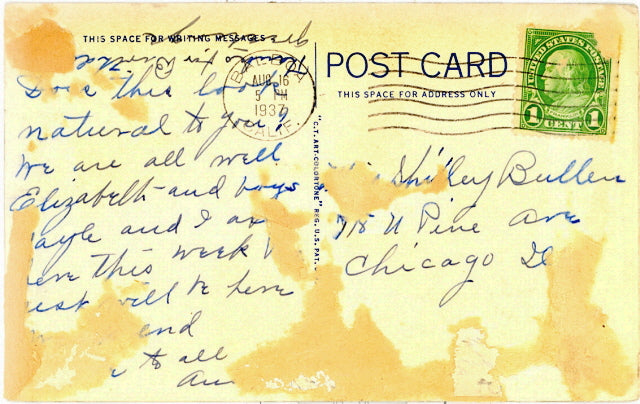 THIS SPACE FOR WRITING MESSAGES
Does this look
natural to you?
We are all well
Elizabeth and boys
Gayle and I are
here this week
rest will be here
end
to all
POST CARD
THIS SPACE FOR ADDRESS ONLY
AUG 16
5 PM
1937
CALIF.
UNITED STATES POSTAGE
1 CENT 1
"C.T. ART-COLORTONE" REG. U.S. PAT.
Shirley Bullen
715 N Pine Ave
Chicago Il